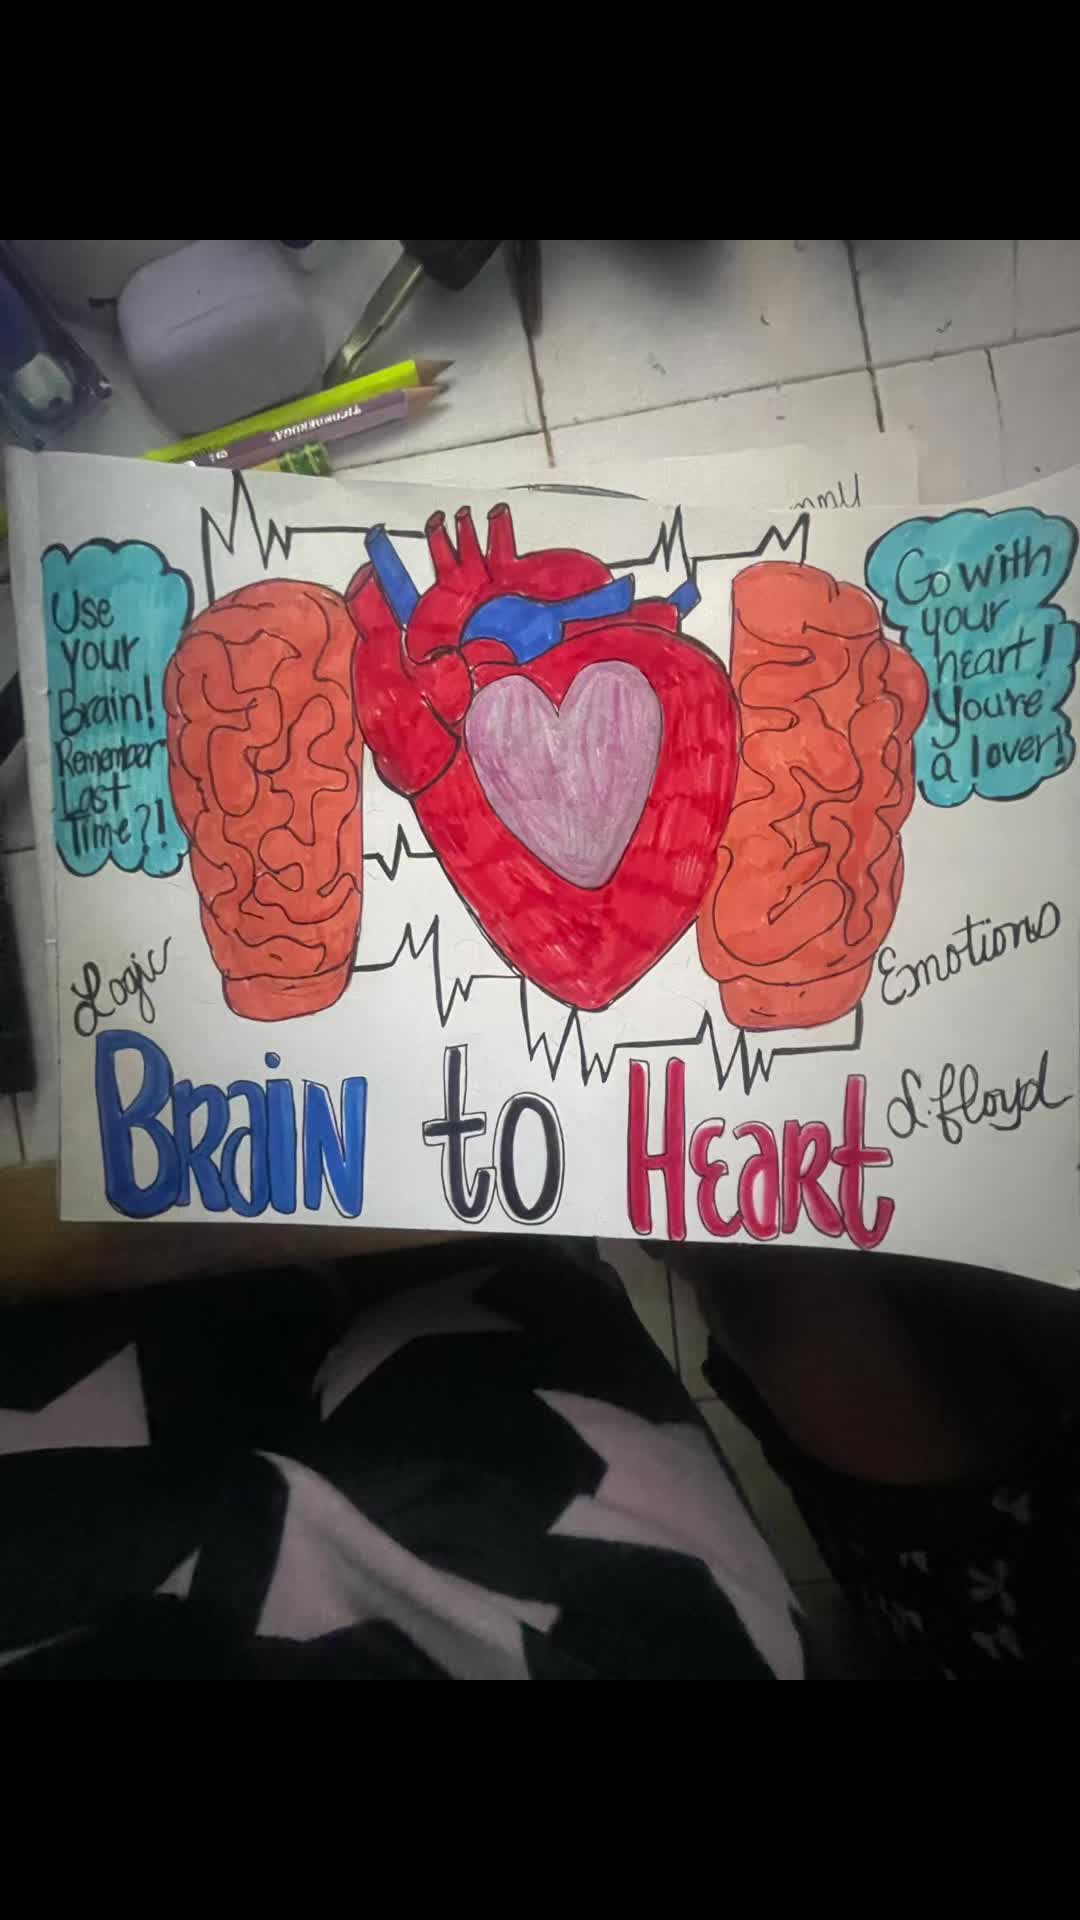 TICONDEROGA
Use
your
Brain!
Remember
Last
Time?!
Go with
your
heart!
You're
a lover!
Logic
Emotions
Brain to Heart
L. Floyd